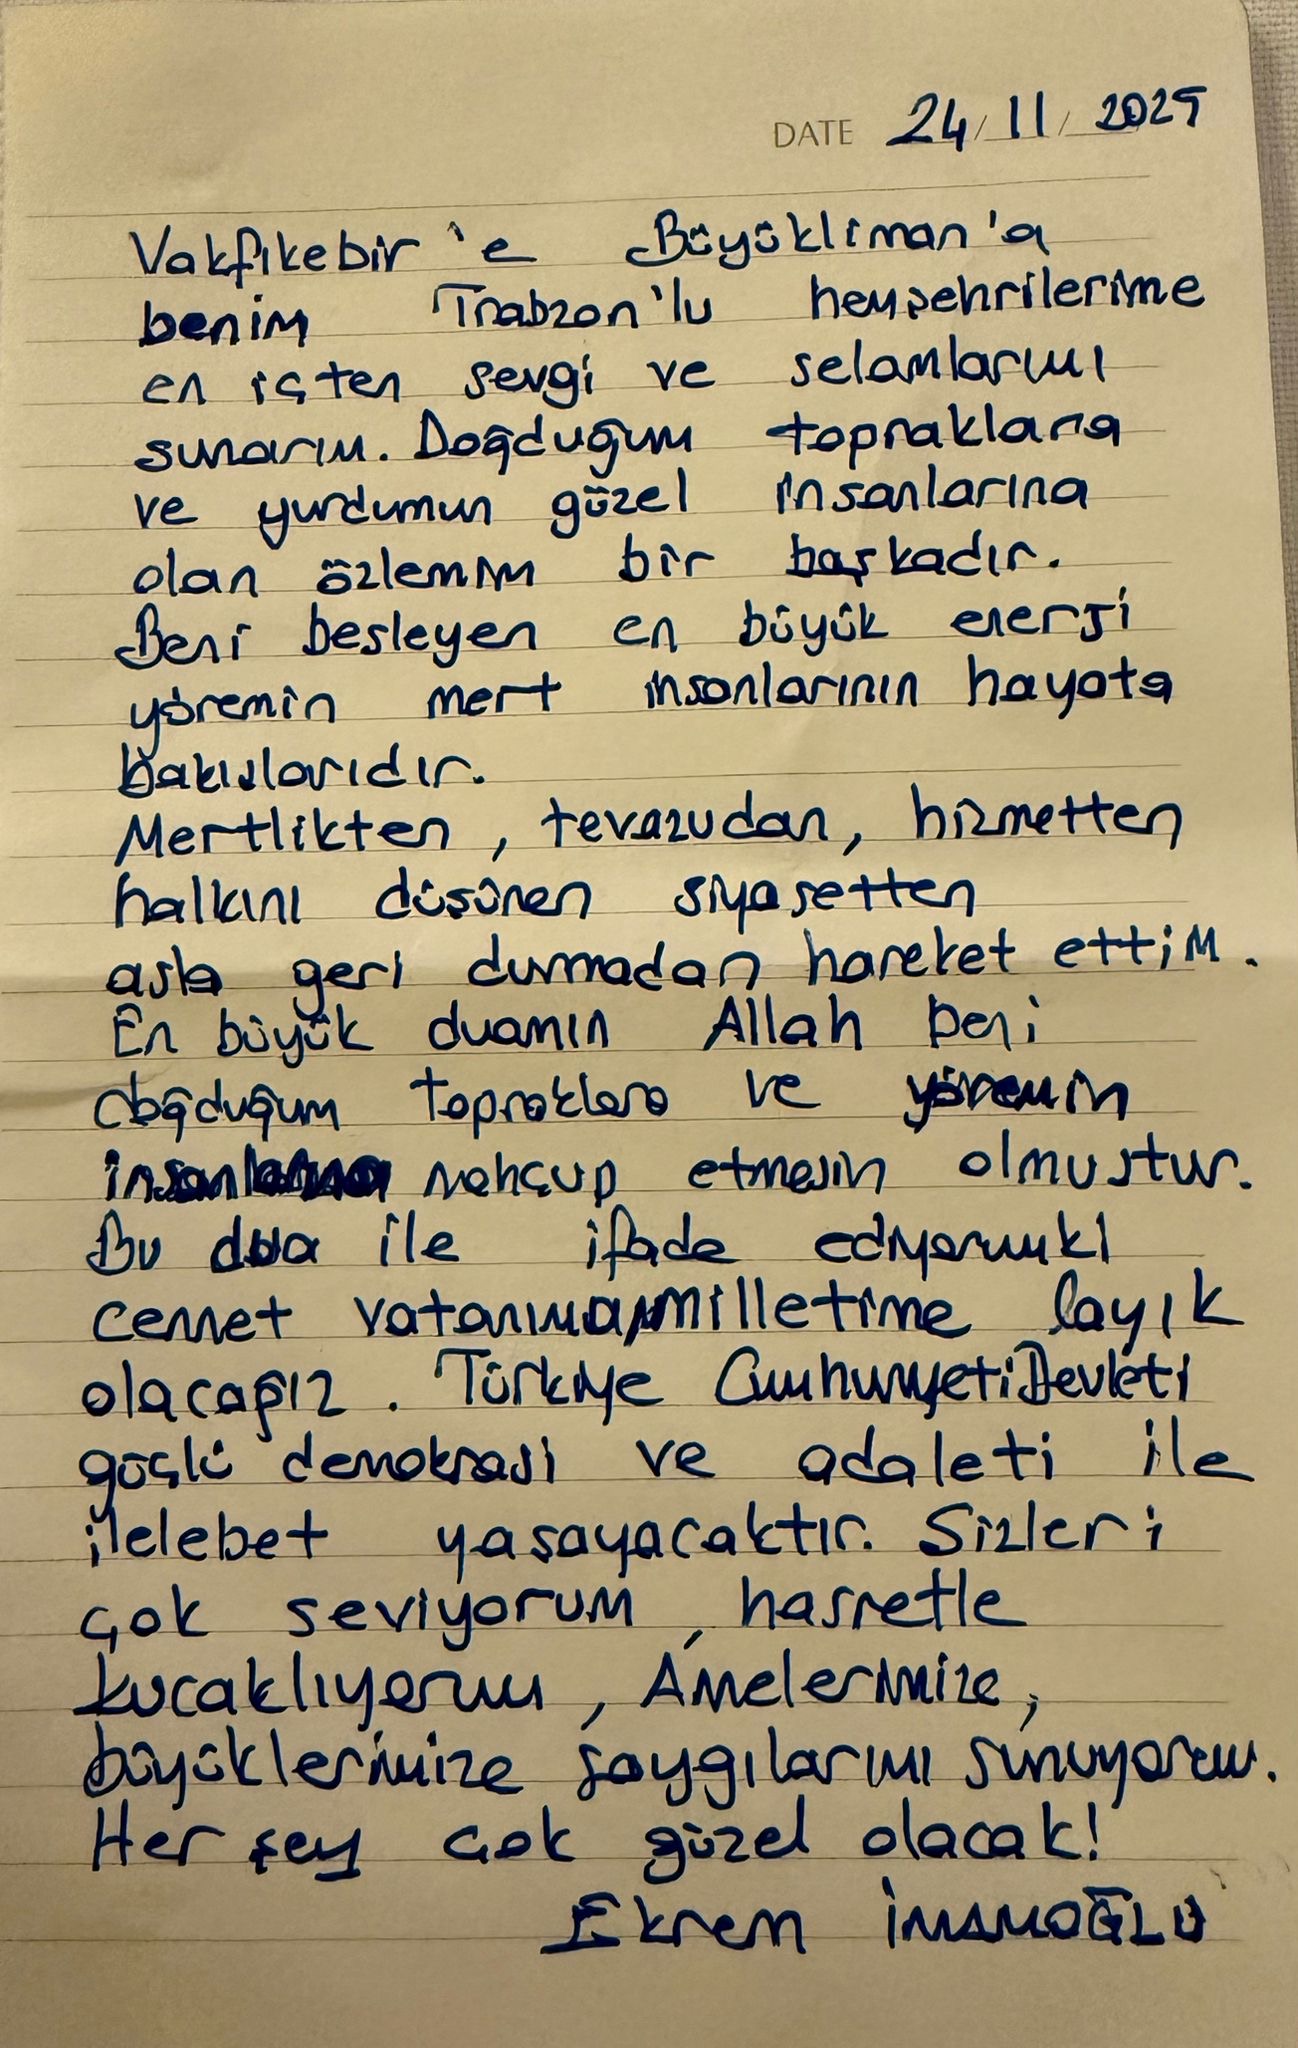 DATE 24/11/2025
Vakfıkebir'e Büyükliman'a
benim Trabzon'lu hemşehrilerime
en içten sevgi ve selamlarımı
sunarım. Doğduğum topraklara
ve yurdumun güzel insanlarına
olan özlemim bir başkadır.
Beni besleyen en büyük enerji
yöremin mert insanlarının hayata
bakışlarıdır.
Mertlikten, tevazudan, hizmetten
halkını düşünen siyasetten
asla geri durmadan hareket ettim.
En büyük duamın Allah beni
doğduğum topraklara ve yöremin
insanlarına mahçup etmesin olmuştur.
Bu dua ile ifade ediyorumki
cennet vatanıma, milletime layık
olacağız. Türkiye Cumhuriyeti Devleti
güçlü demokrasi ve adaleti ile
ilelebet yaşayacaktır. Sizleri
çok seviyorum, hasretle
kucaklıyorum, Annelerimize,
büyüklerimize saygılarımı sunuyorum.
Her şey çok güzel olacak!
Ekrem İMAMOĞLU